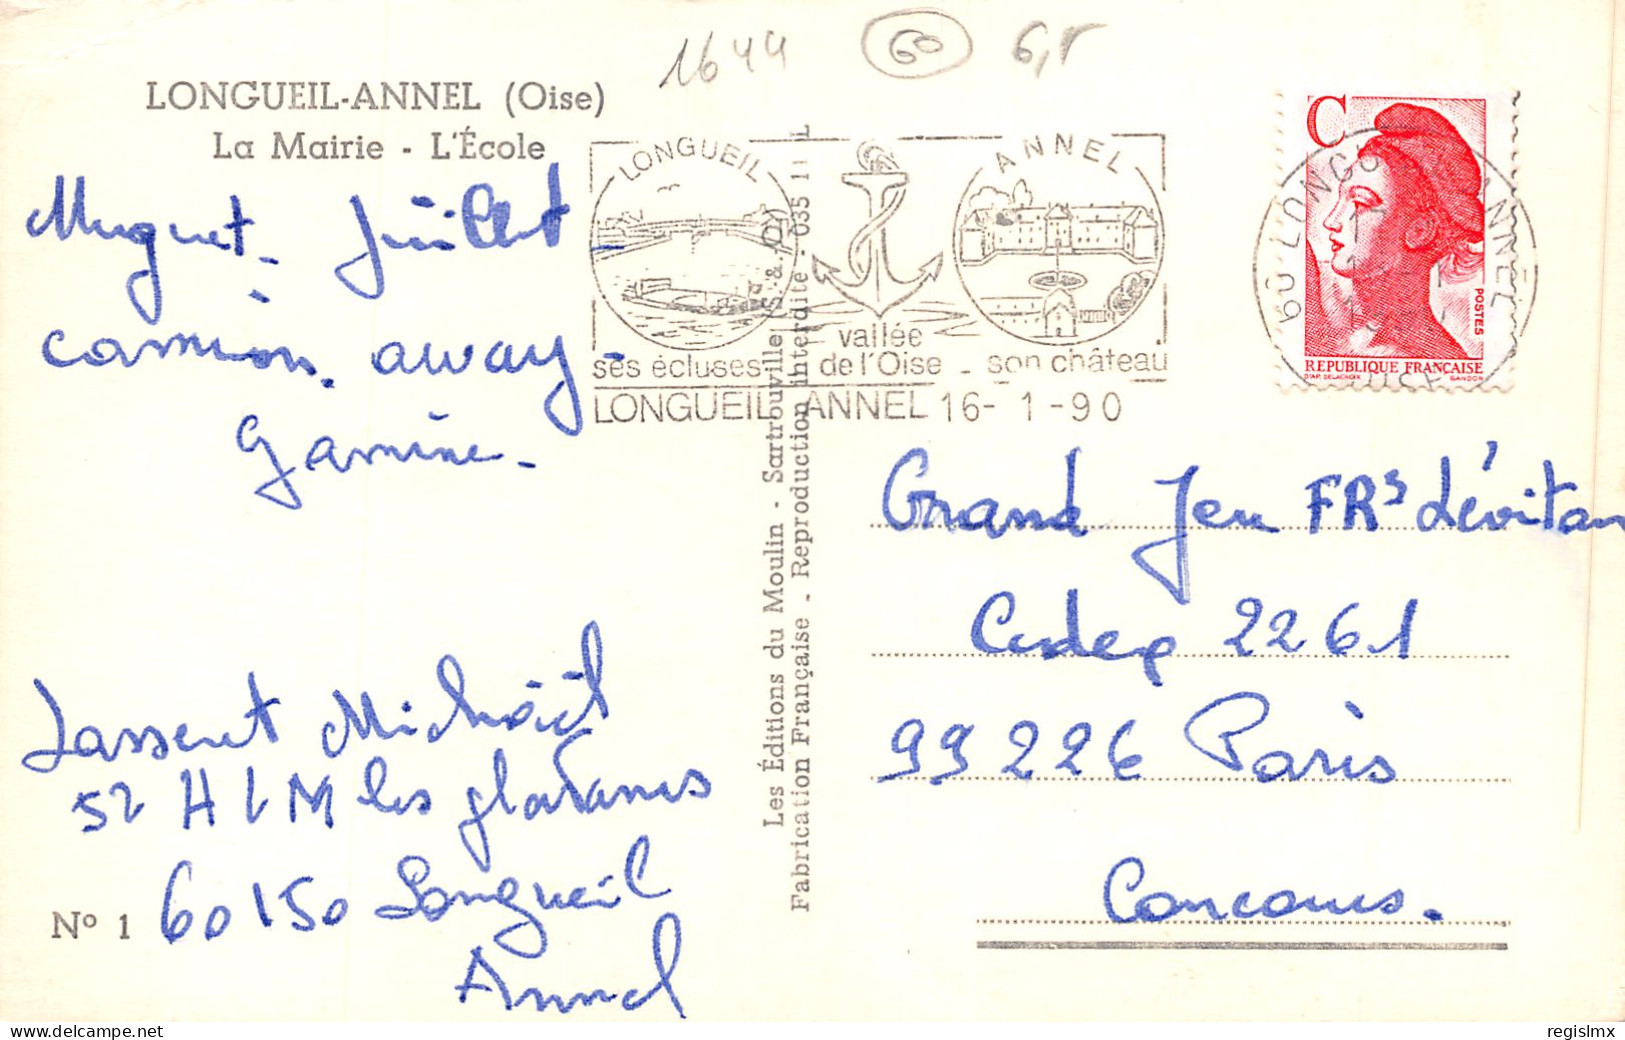 1644 60 6,5
LONGUEIL-ANNEL (Oise)
La Mairie - L'École
Muguet. juillet
camion. away
gamine.
Lasseret
52 HLM les platanes
60150 Longueil
Annel
N° 1
LONGUEIL ANNEL
ses écluses vallée de l'Oise - son château
LONGUEIL ANNEL 16-1-90
Les Éditions du Moulin - Sartrouville (S.-&-O)
Fabrication Française - Reproduction interdite - 035
C
POSTES
REPUBLIQUE FRANÇAISE
D'AP. DELACROIX GANDON
60 LONGUEIL ANNEL
Grand Jeu FRs Lévitan
Cedex 2261
99226 Paris
Concours.
regislmx